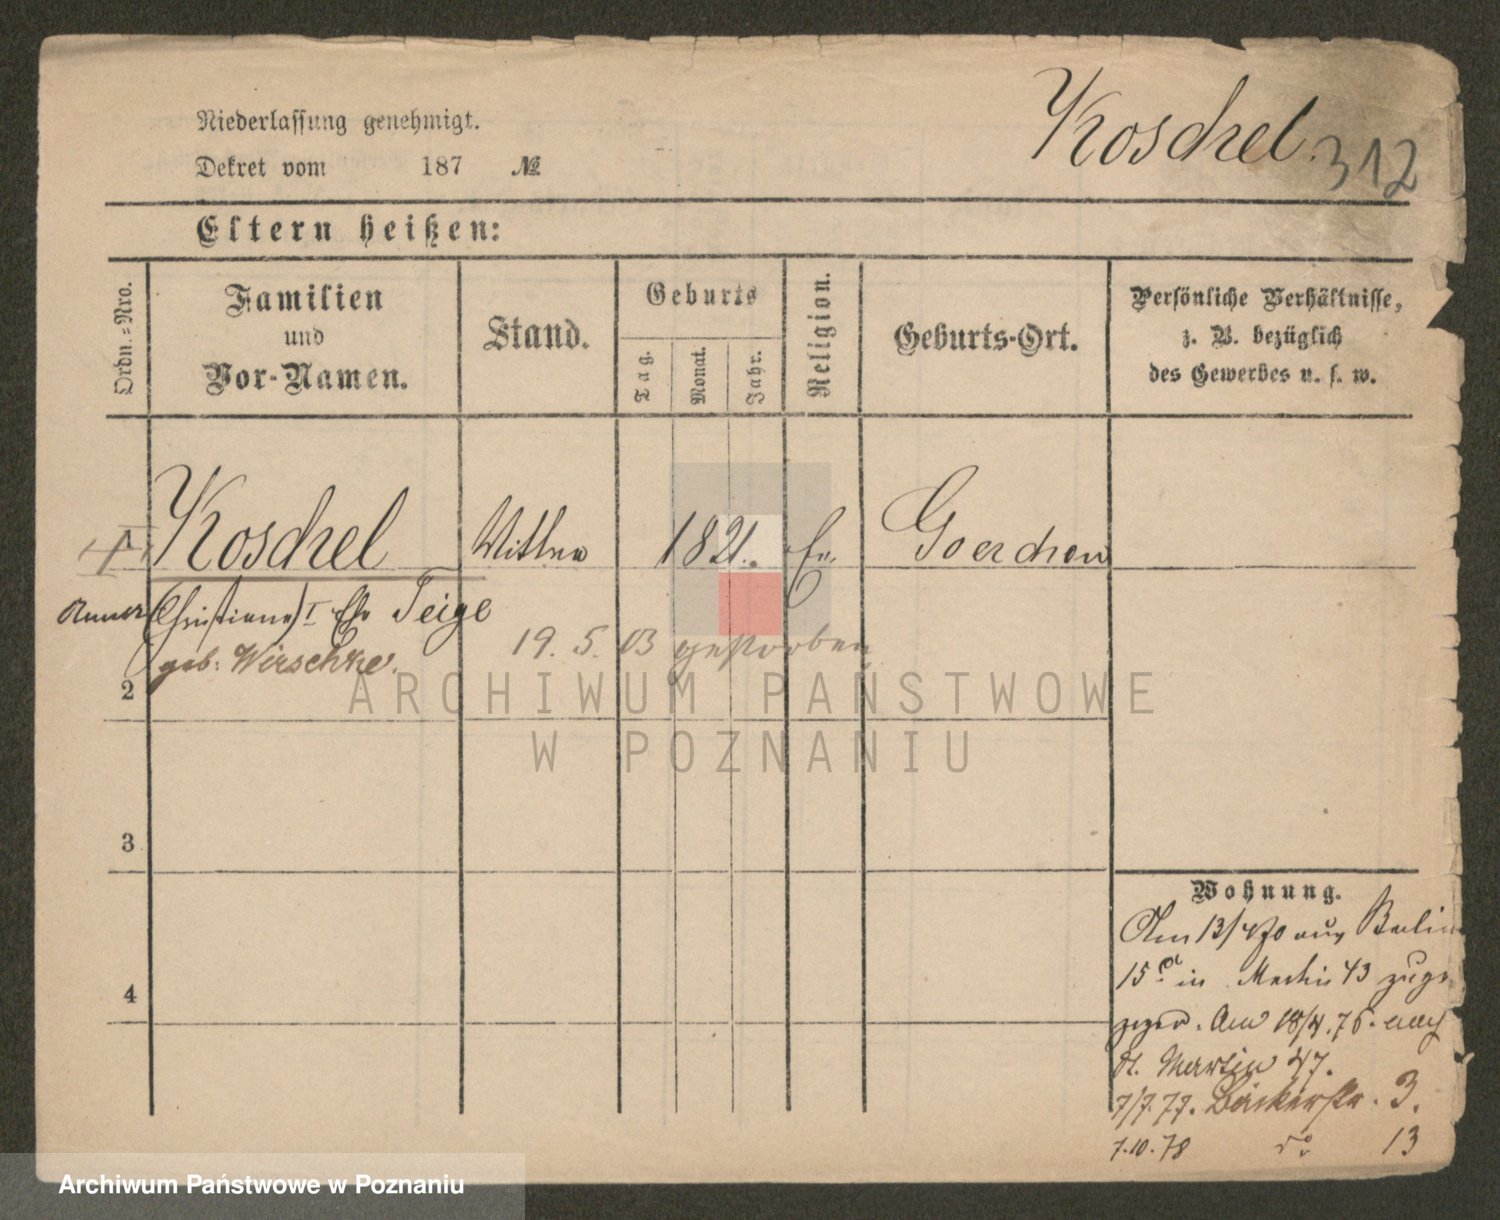 Niederlassung genehmigt.
Koschel.
312
Dekret vom 187 №
Eltern heißen:
Ordn.-Nro.
Familien
und
Vor-Namen.
Stand.
Geburts
Tag.
Monat.
Jahr.
Religion.
Geburts-Ort.
Persönliche Verhältnisse,
z. B. bezüglich
des Gewerbes u. s. w.
1 Koschel 1821. Ev. Goerchen
(Christiane) I Teige
geb: Wirschke.
19. 5. 03 gestorben
2
3
4
Wohnung.
Am 13/4 70 aus Berlin
15a in Martin 43 zuge
zogen. Am 18/4. 76. nach
St. Martin 47.
7/7. 77. Bäckerstr. 3.
7.10.78 do 13
ARCHIWUM PAŃSTWOWE
W POZNANIU
Archiwum Państwowe w Poznaniu